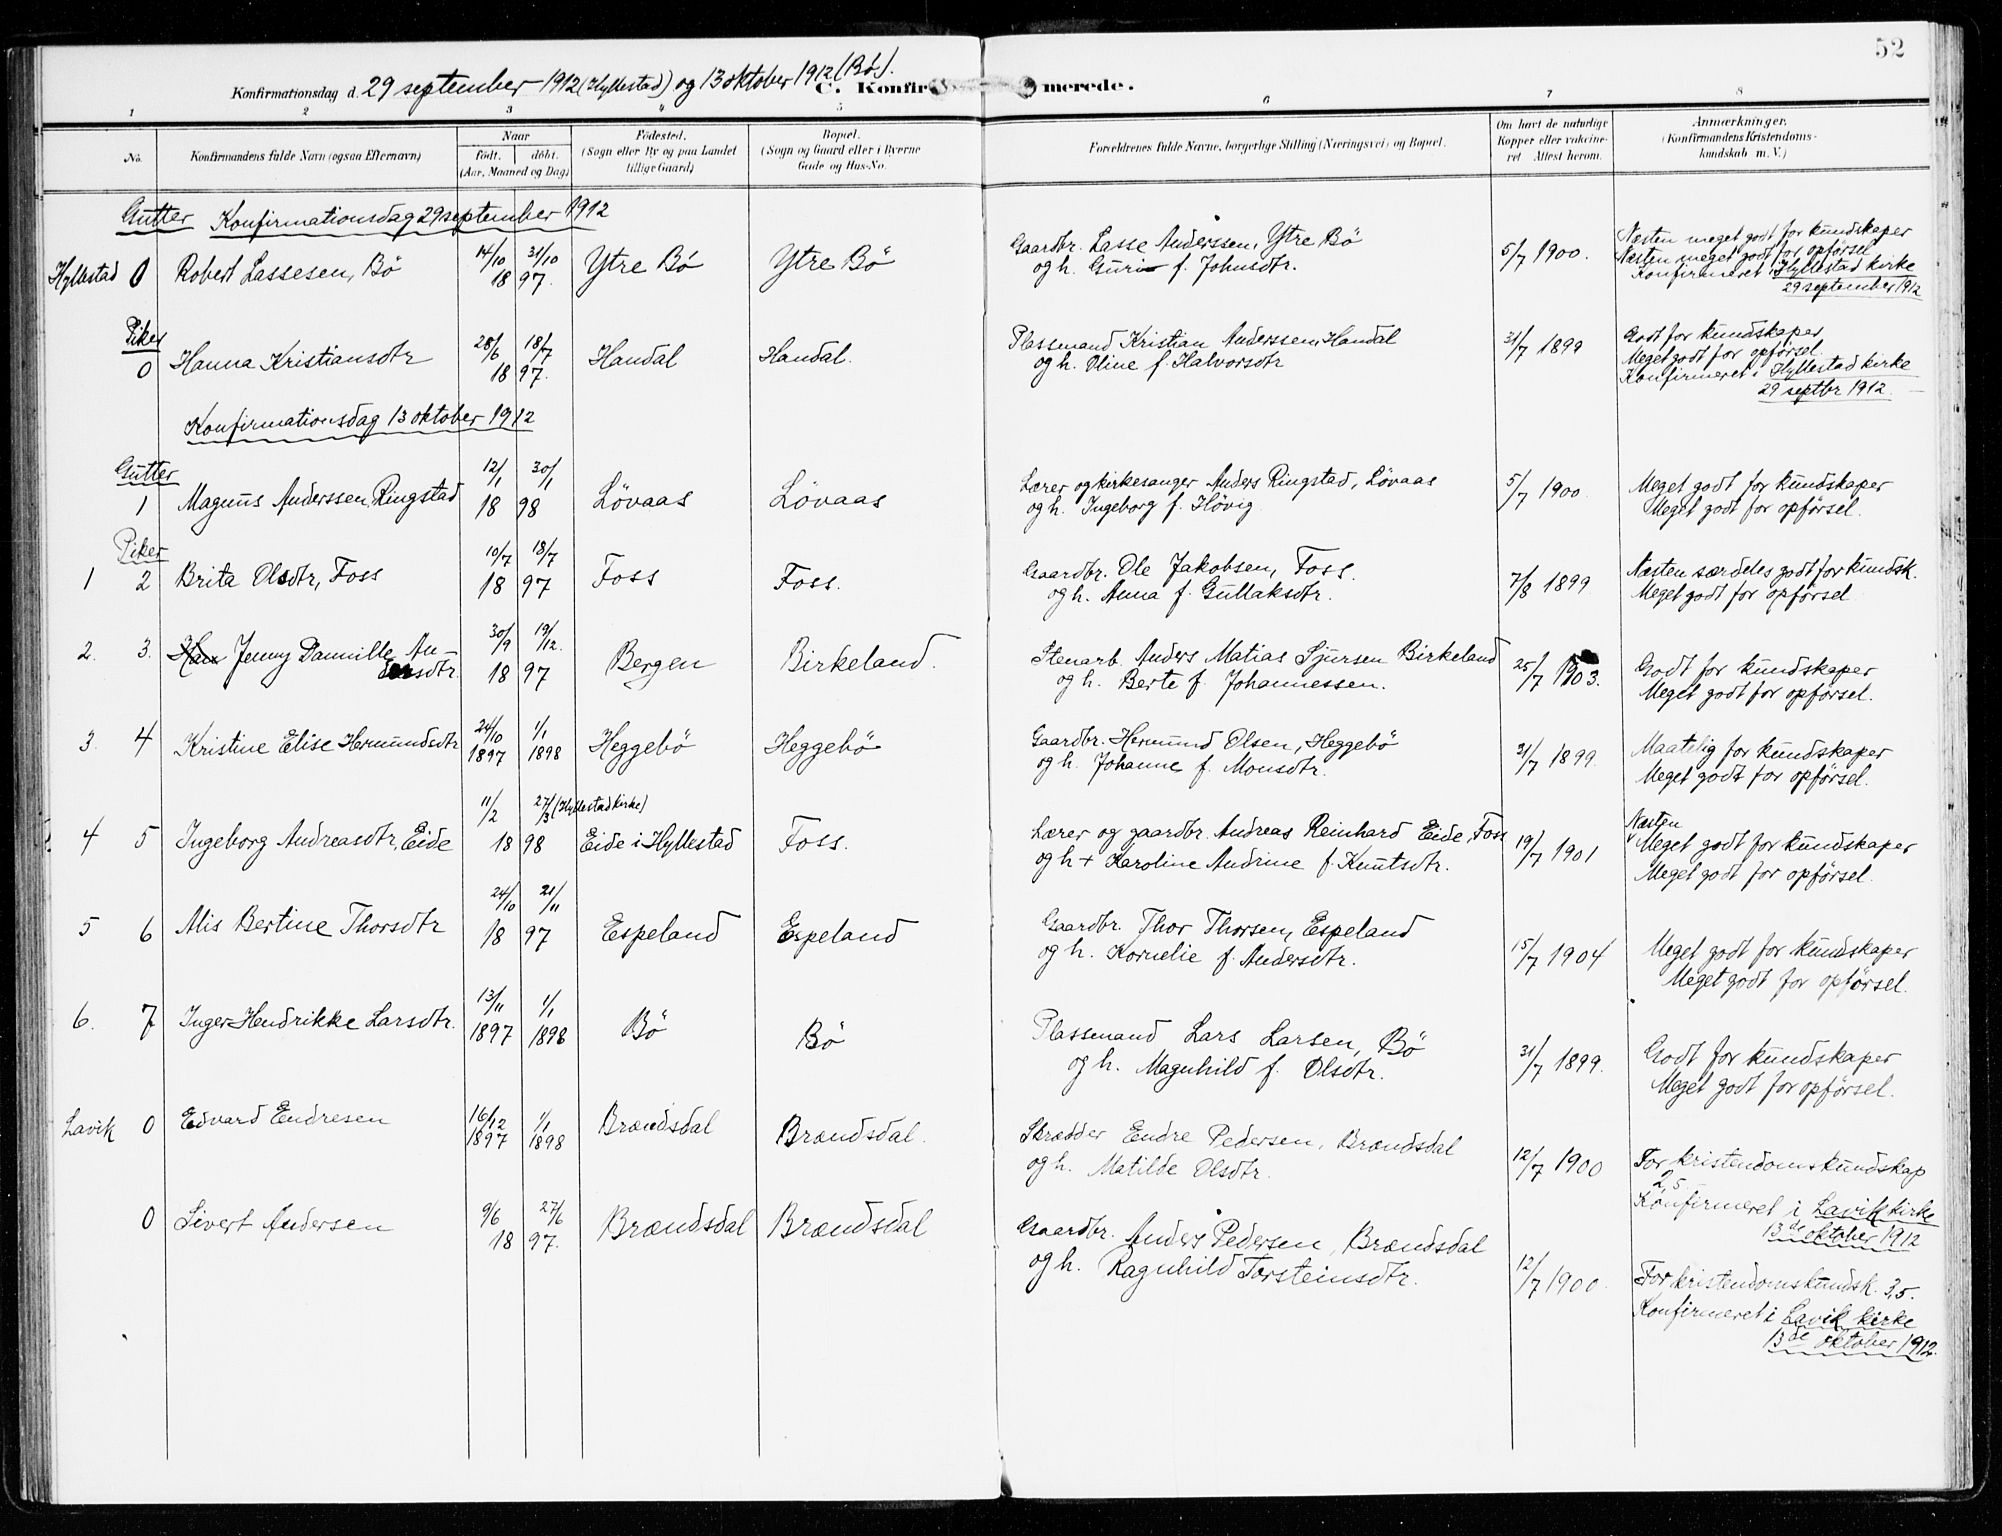 52
Konfirmationsdag d. 29 september 1912 (Hyllestad) og 13 oktober 1912 (Bö).
C. Konfirmerede.
1 2 3 4 5 6 7 8
No.
Konfirmandens fulde Navn (ogsaa Efternavn)
Naar
födt. döbt.
(Aar, Maaned og Dag)
Födested.
(Sogn eller By og paa Landet
tillige Gaard)
Bopæl.
(Sogn og Gaard eller i Byerne
Gade og Hus-No.
Forældrenes fulde Navne, borgerlige Stilling (Næringsvei) og Bopæl.
Om havt de naturlige
Kopper eller vakcine-
ret. Attest herom.
Anmærkninger.
(Konfirmandens Kristendoms-
kundskab m. V.)
Gutter Konfirmationsdag 29 september 1912
Hyllestad 0 Robert Lassesen, Bö 14/10 31/10 18 97. Ytre Bö Ytre Bö
Gaardbr. Lasse Anderssen, Ytre Bö
og h. Guri f. Johnsdtr.
5/7 1900.
Næsten meget godt for kundskaper
Næsten meget godt for opförsel
Konfirmeret i Hyllestad kirke
29 september 1912
Piker
0 Hanna Kristiansdtr 28/6 18/7 18 97. Handal Handal.
Plassmand Kristian Anderssen Handal
og h. Oline f. Halvorsdtr
31/7 1899
Godt for kundskaper
Meget godt for opförsel.
Konfirmeret i Hyllestad kirke
29 septbr 1912.
Konfirmationsdag 13 oktober 1912
Gutter
1 Magnus Anderssen Ringstad 12/1 30/1 18 98 Lövaas Lövaas
Lærer og kirkesanger Anders Ringstad, Lövaas
og h. Ingeborg f. Hövig
5/7 1900.
Meget godt for kundskaper
Meget godt for opförsel.
Piker
1 2 Brita Olsdtr, Foss 10/7 18/7 18 97 Foss Foss.
Gaardbr. Ole Jakobsen, Foss.
og h. Anna f. Gullaksdtr.
7/8 1899
Næsten særdeles godt for kundsk.
Meget godt for opförsel
2. 3. Jenny Dannille An-
dersdtr. 30/9 19/12. 18 97 Bergen Birkeland.
Stenarb. Anders Matias Sjursen Birkeland
og h. Berte f. Johannessen.
25/7 1903.
Godt for kundskaper
Meget godt for opförsel.
3. 4 Kristine Elise Hermundsdtr 24/10 1897 1/1 1898 Heggebö Heggebö
Gaardbr. Hermund Olsen, Heggebö
og h. Johanne f. Monsdtr.
31/7 1899.
Maatelig for kundskaper
Meget godt for opförsel.
4 5 Ingeborg Andreasdtr, Eide 11/2 27/3 (Hyllestad kirke) 18 98 Eide i Hyllestad Foss.
Lærer og gaardbr. Andreas Reinhard Eide, Foss
og h + Karoline Andrine f. Knutsdtr.
19/7 1901
Næsten
Meget godt for kundskaper
Meget godt for opförsel.
5 6 Alis Bertine Thorsdtr 24/10 21/11 18 97 Espeland Espeland
Gaardbr. Thor Thorsen, Espeland
og h. Kornelie f. Andersdtr.
15/7 1904
Meget godt for kundskaper
Meget godt for opförsel.
6. 7 Inger Hendrikke Larsdtr. 13/11 1897 1/1 1898 Bö Bö
Plassmand Lars Larsen, Bö
og h. Magnhild f. Olsdtr.
31/7 1899.
Godt for kundskaper
Meget godt for opförsel.
Lavik 0 Edvard Endresen 16/12 1897 1/1 1898 Brændsdal Brændsdal.
Skrædder Endre Pedersen, Brændsdal
og h. Matilde Olsdtr.
12/7 1900
For kristendomskundskap
2,5
Konfirmeret i Lavik kirke
13de oktober 1912
0 Sivert Andersen 9/6 27/6 18 97. Brændsdal Brændsdal
Gaardbr. Anders Pedersen, Brændsdal
og h. Ragnhild Torsteinsdtr.
12/7 1900.
For kristendomskundsk. 3,5.
Konfirmeret i Lavik kirke
13de oktober 1912.